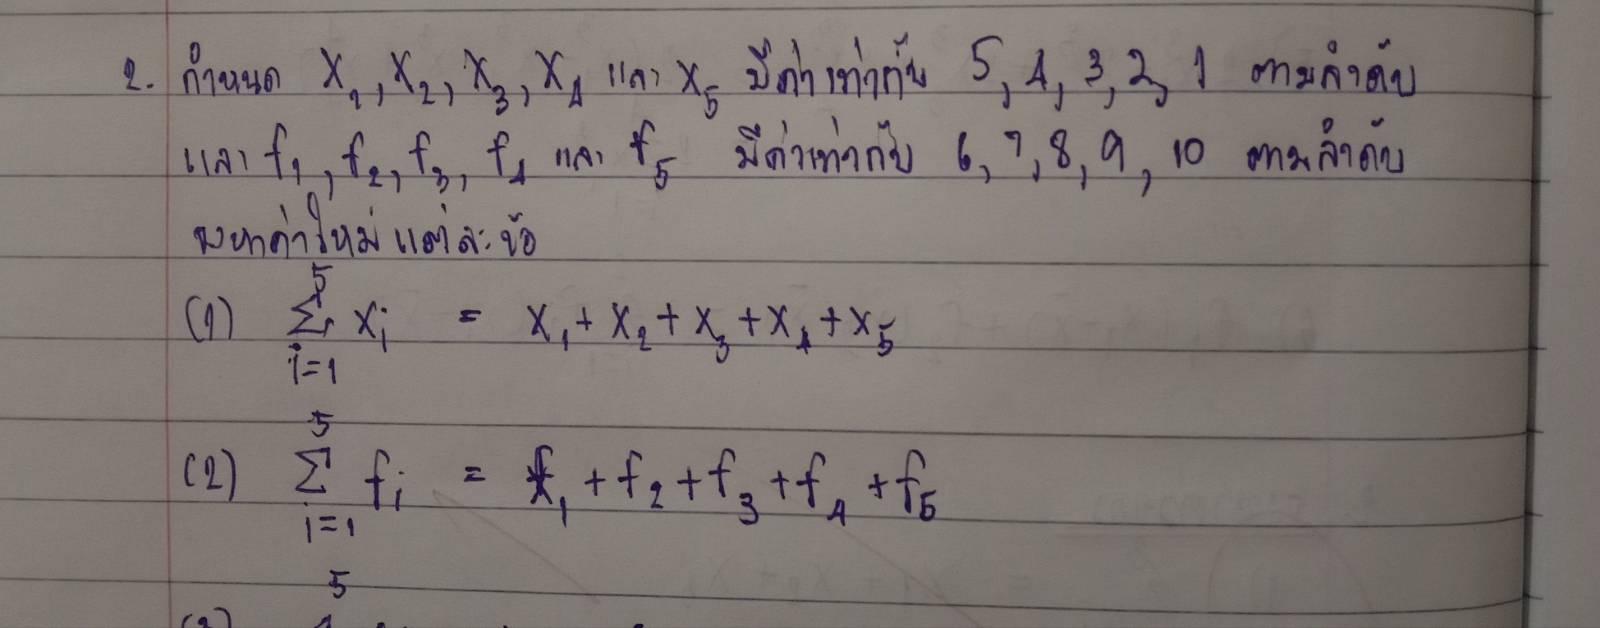 2. กำหนด X₁, X₂, X₃, X₄ และ X₅ มีค่าเท่ากับ 5, 4, 3, 2, 1 ตามลำดับ
และ f₁, f₂, f₃, f₄ และ f₅ มีค่าเท่ากับ 6, 7, 8, 9, 10 ตามลำดับ
จงหาค่าใหม่แต่ละข้อ
5
(1) Σ xᵢ = X₁ + X₂ + X₃ + X₄ + X₅
i=1
5
(2) Σ fᵢ = f₁ + f₂ + f₃ + f₄ + f₅
i=1
5